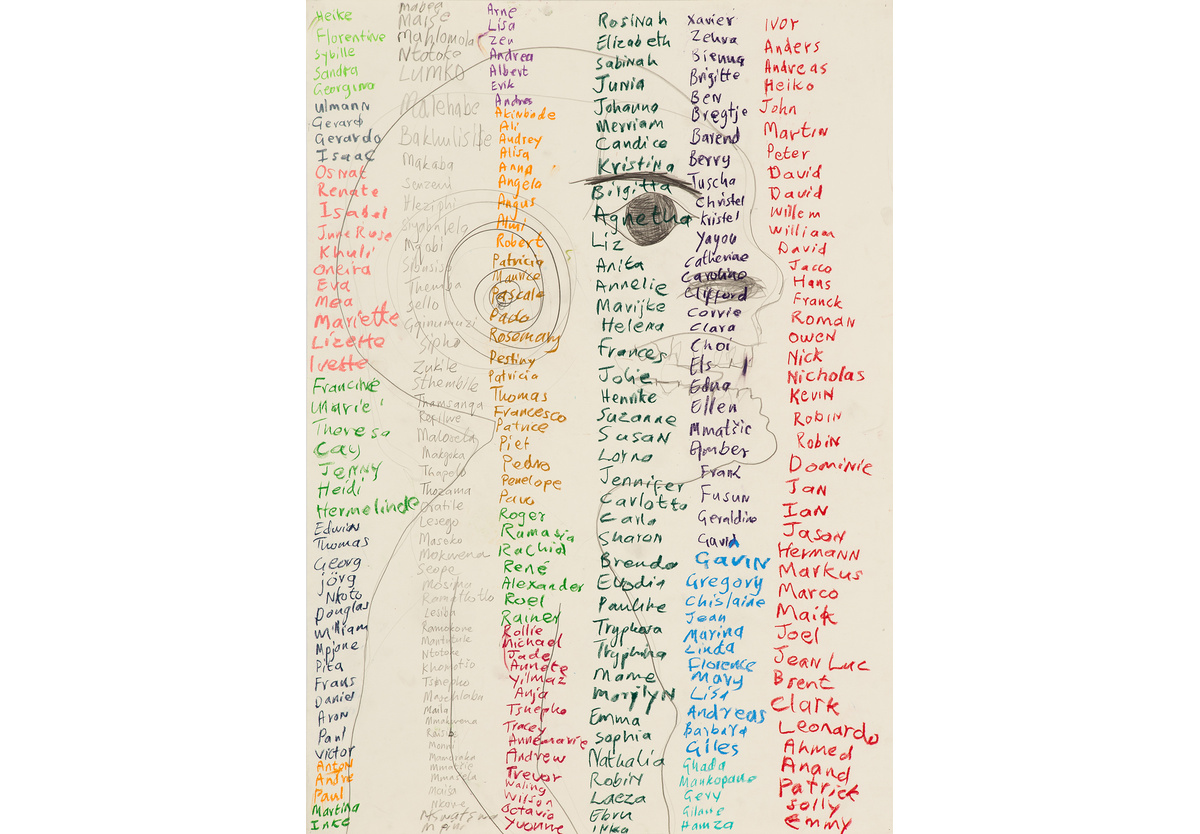 Heike
Florentine
Sybille
Sandra
Georgina
Ulmann
Gerard
Gerardo
Isaac
Osnat
Renate
Isabel
June Rose
Khuli
Oneira
Eva
Mea
Mariette
Lizette
Ivette
Francine
Marie
Theresa
Cay
Jenny
Heidi
Hermelinde
Edwin
Thomas
Georg
jörg
Nkoto
Douglas
William
Mpjone
Pita
Frans
Daniel
Aron
Paul
Victor
Anton
André
Paul
Martina
Inke
Mabea
Maise
Mahlomola
Ntotoke
Lumko
Malehabe
Makaba
Senzeni
Hleziphi
Siyabulela
Mjobi
Sibusiso
Themba
Sello
Sipho
Zukile
Sthembile
Thamsanqa
Refilwe
Thapelo
Thozama
Lesego
Masoko
Mokwena
Lesiba
Ramokone
Ntotoke
Khomotjo
Tshepho
Arne
Lisa
Zen
Andrea
Albert
Erik
Andres
Akinbode
Ali
Audrey
Alisa
Anna
Angela
Angus
Almi
Robert
Patricia
Maurice
Pascale
Pado
Rosemary
Destiny
Patricia
Thomas
Francesco
Patrice
Piet
Pedro
Penelope
Pavo
Roger
Ramasia
Rachid
René
Alexander
Roel
Rainer
Rollie
Michael
Jade
Annete
Yilmaz
Anja
Tshepho
Tracey
Annemarie
Andrew
Trevor
Waling
Wilson
Octavio
Yvonne
Rosinah
Elizabeth
Sabinah
Junia
Johanna
Merriam
Candice
Kristina
Birgitta
Agnetha
Liz
Anita
Annelie
Marijke
Helena
Frances
Jolie
Henrike
Suzanne
Susan
Lorna
Jennifer
Carlotta
Carla
Sharon
Brenda
Evodia
Pauline
Tryphosa
Tryphina
Mame
Marilyn
Emma
Sophia
Nathalia
Robin
Laeza
Ebru
Inka
Xavier
Zehra
Bienna
Brigitte
Ben
Bregtje
Barend
Berry
Tuscha
Christel
Kristel
Yayou
Catherine
Caroline
Clifford
Corvie
Clara
Choi
Els
Edna
Ellen
Mmatšie
Amber
Frank
Fusun
Geraldine
Gavid
Gavin
Gregory
Ghislaine
Jean
Marina
Linda
Florence
Mary
Lisa
Andreas
Barbara
Giles
Ghada
Mankopane
Gery
Gilane
Hamza
Ivor
Anders
Andreas
Heiko
John
Martin
Peter
David
David
Willem
William
David
Jacco
Hans
Franck
Roman
Owen
Nick
Nicholas
Kevin
Robin
Robin
Dominic
Jan
Ian
Jason
Hermann
Markus
Marco
Maik
Joel
Jean Luc
Brent
Clark
Leonardo
Ahmed
Anand
Patrick
Solly
Emmy